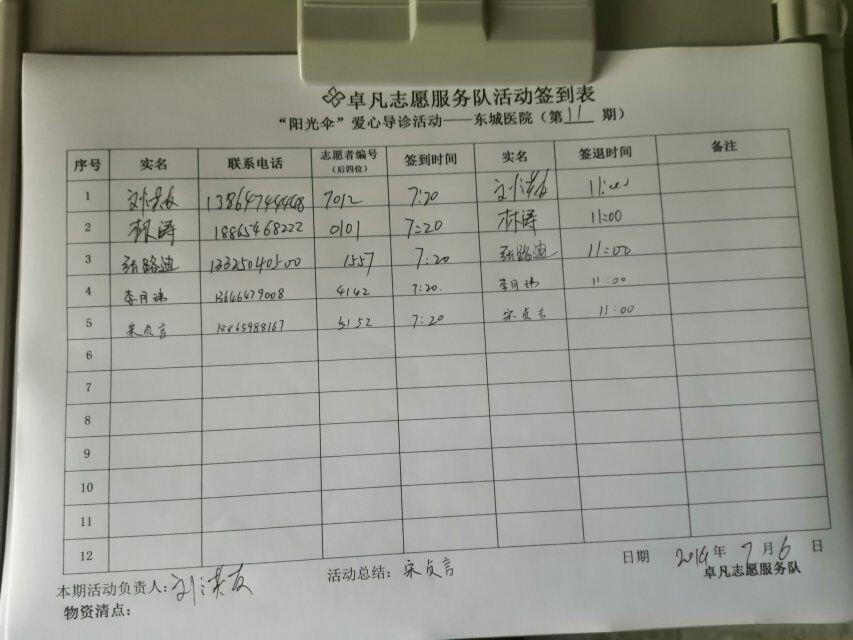 卓凡志愿服务队活动签到表
“阳光伞”爱心导诊活动——东城医院(第 11 期)
序号 实名 联系电话 志愿者编号(后四位) 签到时间 实名 签退时间 备注
1 刘洪友 13864744448 7012 7:20 刘洪友 11:00
2 林涛 18865468222 0101 7:20 林涛 11:00
3 张路迪 13325040500 1557 7:20 张路迪 11:00
4 李月瑞 13646479008 4142 7:20. 李月瑞 11:00
5 宋贞言 18865988167 3152 7:20 宋贞言 11:00
6
7
8
9
10
11
12
本期活动负责人:刘洪友 活动总结:宋贞言 日期 2019年 7月6日
物资清点: 卓凡志愿服务队